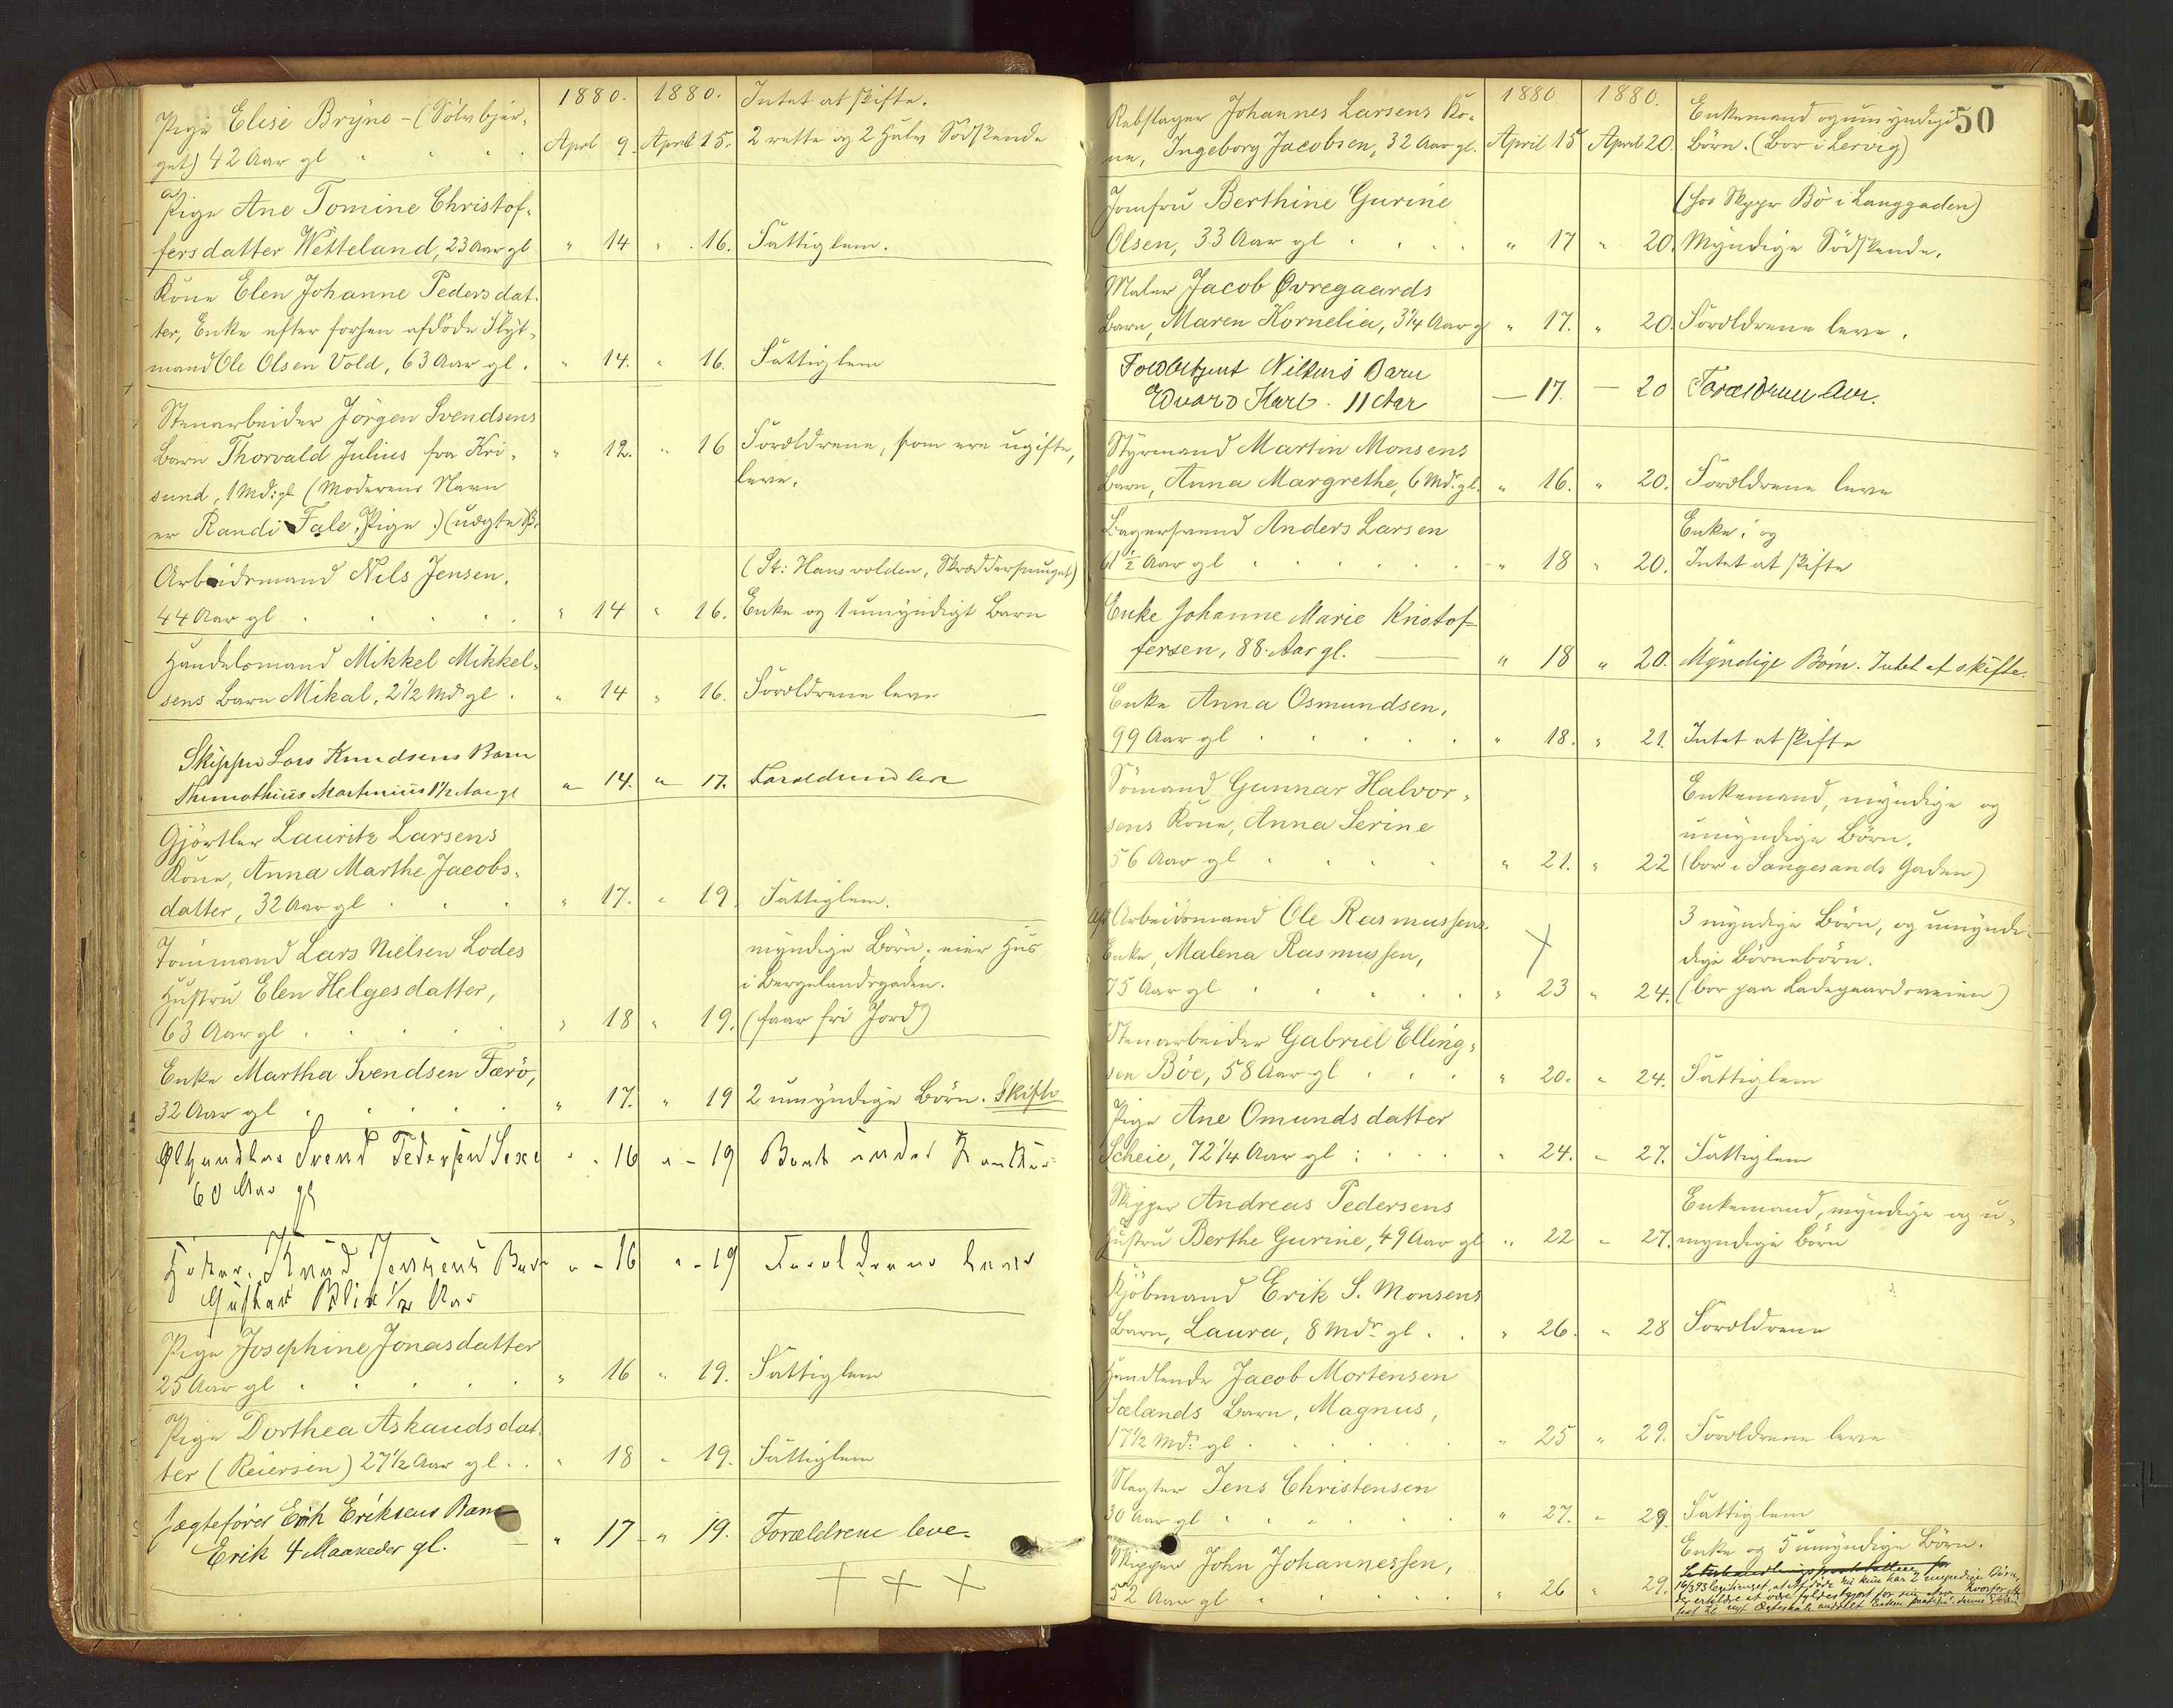 Pige Elise Bryne - (Sölvbjer-
get) 42 Aar gl
1880. April 9.
1880. April 15.
Intet at skifte.
2 rette og 2 Halv Södskende
Pige Ane Tomine Christof-
fersdatter Wetteland, 23 Aar gl
" 14 " 16. Fattiglem.
Kone Elen Johanne Pedersdat-
ter, Enke efter forhen afdöde Flyt-
mand Ole Olsen Vold, 63 Aar gl.
" 14. " 16. Fattiglem
Stenarbeider Jörgen Svendsens
Barn Thorvald Julius fra Kri-
sund, 1 Md: gl (Moderens Navn
er Randi Fale, Pige.) (uægte B.
" 12. " 16 Forældrene, som ere ugifte,
leve.
Arbeidsmand Nils Jensen,
44 Aar gl
" 14 " 16.
(St: Hansvolden, Skræddersmuget)
Enke og 1 umyndigt Barn
Handelsmand Mikkel Mikkel-
sens Barn Mikal, 2 1/2 Mdr gl.
" 14 " 16. Forældrene leve
Skipper Lars Knudsens Barn
Thimothius Martinius 1 1/2 Aar gl
" 14. " 17. Forældrene leve
Gjörtler Lauritz Larsens
Kone, Anna Marthe Jacobs-
datter, 32 Aar gl
" 17. " 19. Fattiglem.
Tömmand Lars Nielsen Lodes
Hustru Elen Helgesdatter,
63 Aar gl
" 18 " 19.
myndige Börn; eier Hus
i Bergelandsgaden.
(faar fri Jord)
Enke Martha Svendsen Færö,
32 Aar gl
" 17. " 19 2 umyndige Börn. Skifte
Ølhandler Svend Pedersen
60 Aar gl
" 16 " - 19
Høker Knud Jensens Barn
Gustav 1/2 Aar
" - 16 " - 19 Forældrene leve
Pige Josephine Jonasdatter
25 Aar gl
" 16 " 19. Fattiglem
Pige Dorthea Askaudsdat-
ter (Reiersen) 27 1/2 Aar gl.
" 18 " 19. Fattiglem
Jægtefører Erik Eriksens Barn
Erik 4 Maaneder gl.
" 17 - " 19. Forældrene leve.
50
Rebslager Johannes Larsens Ko-
ne, Ingeborg Jacobsen, 32 Aar gl.
1880 April 15
1880. April 20.
Enkemand og umyndige
Börn. (Bor i Lervig)
Jomfru Berthine Gurine
Olsen, 33 Aar gl
" 17 " 20.
(hos Skypr Bö i Langgaden)
Myndige Södskende.
Maler Jacob Øvregaards
Barn, Maren Kornelia, 3 1/4 Aar gl
" 17. " 20. Forældrene leve.
Barn
Edvard Karl. 11 Aar
— 17. — 20 Forældrene
Styrmand Martin Monsens
Barn, Anna Margrethe, 6 Mdr. gl.
" 16. " 20. Forældrene leve
Bagersvend Anders Larsen
61 1/2 Aar gl
" 18 " 20.
Enke; og
Intet at skifte
Enke Johanne Marie Kristof-
fersen, 88. Aar gl.
" 18 " 20. Myndige Børn. Intet at skifte.
Enke Anna Osmundsen,
99 Aar gl
" 18. " 21. Intet at skifte
Sömand Gunnar Halvor-
sens Kone, Anna Serine
56 Aar gl
" 21. " 22
Enkemand, myndige og
umyndige Börn.
(bor i Langesands Gaden)
Afd. Arbeidsmand Ole Rasmussens
Enke, Malena Rasmussen,
75 Aar gl
" 23 " 24.
3 myndige Börn, og umyn-
dige Börnebörn.
(bor paa Ladegaardsveien)
Stenarbeider Gabriel Elling-
sen Böe, 58 Aar gl
" 20. " 24. Fattiglem
Pige Ane Omundsdatter
Scheie, 72 1/4 Aar gl
" 24. " 27. Fattiglem
Skipper Andreas Pedersens
Hustru Berthe Gurine, 49 Aar gl
" 22 " 27.
Enkemand, myndige og u-
myndige Börn
Kjöbmand Erik S. Monsens
Barn, Laura, 8 Mdr gl.
" 26. " 28 Forældrene
Handlende Jacob Mortensen
Sælands Barn, Magnus,
17 1/2 Mdr. gl
" 25 " 29. Forældrene leve
Slagter Jens Christensen
30 Aar gl
" 27. " 29. Fattiglem
Skipper John Johannessen,
52 Aar gl
" 26 " 29.
Enke og 5 umyndige Börn.